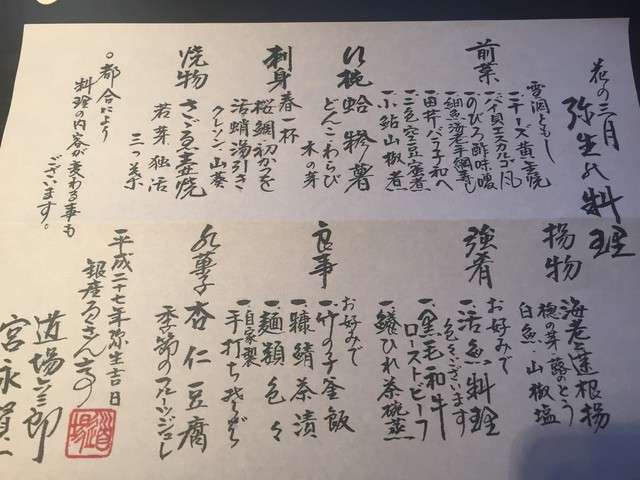 花の三月
弥生の料理
前菜
雪洞ともし
一、チーズ黄
一、バイ貝エスカルゴ風
一、のびろ酢味噌
一、細魚海老手綱寿し
一、田井バラ子和へ
一、三色空豆蜜煮
一、小鮎山椒煮
蛤
薯
どんこわらび
木の芽
刺身
春一杯
桜鯛初かつを
活蛸湯引き
クレソン、山葵
焼物
さざゑ壺焼
若芽独活
三つ葉
○都合により
料理の内容が変わる事も
ございます。
揚物
海老蓮根揚
楤の芽・蕗のとう
白魚・山椒塩
強肴
お好みで
一、活魚料理
色々ございます
一、黒毛和牛
ローストビーフ
一、鱶ひれ茶碗蒸
食事
お好みで
一、竹の子釜飯
一、糠鯖茶漬
一、麺類色々
自家製
一、平打ち
水菓子
杏仁豆腐
季節のフルーツジュレ
平成二十七年弥生吉日
銀座ろくさん亭
道場六三郎
宮永賢一
道場